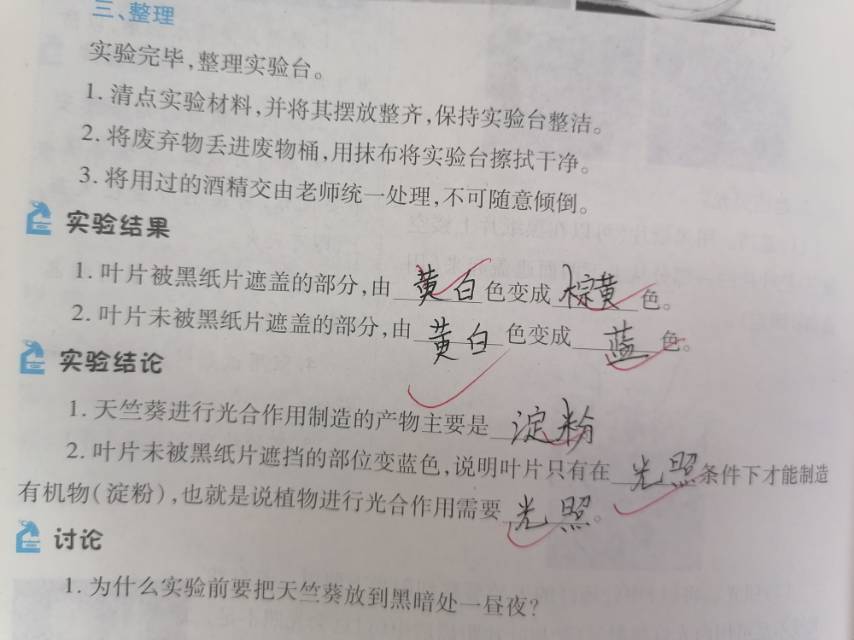 三、整理
实验完毕,整理实验台。
1. 清点实验材料,并将其摆放整齐,保持实验台整洁。
2. 将废弃物丢进废物桶,用抹布将实验台擦拭干净。
3. 将用过的酒精交由老师统一处理,不可随意倾倒。
实验结果
1. 叶片被黑纸片遮盖的部分,由黄白色变成棕黄色。
2. 叶片未被黑纸片遮盖的部分,由黄白色变成蓝色。
实验结论
1. 天竺葵进行光合作用制造的产物主要是淀粉
2. 叶片未被黑纸片遮挡的部位变蓝色,说明叶片只有在光照条件下才能制造
有机物(淀粉),也就是说植物进行光合作用需要光照。
讨论
1. 为什么实验前要把天竺葵放到黑暗处一昼夜?